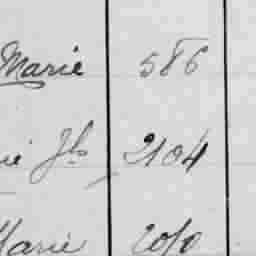 Marie 586
ie Jh 2104
Marie 2010